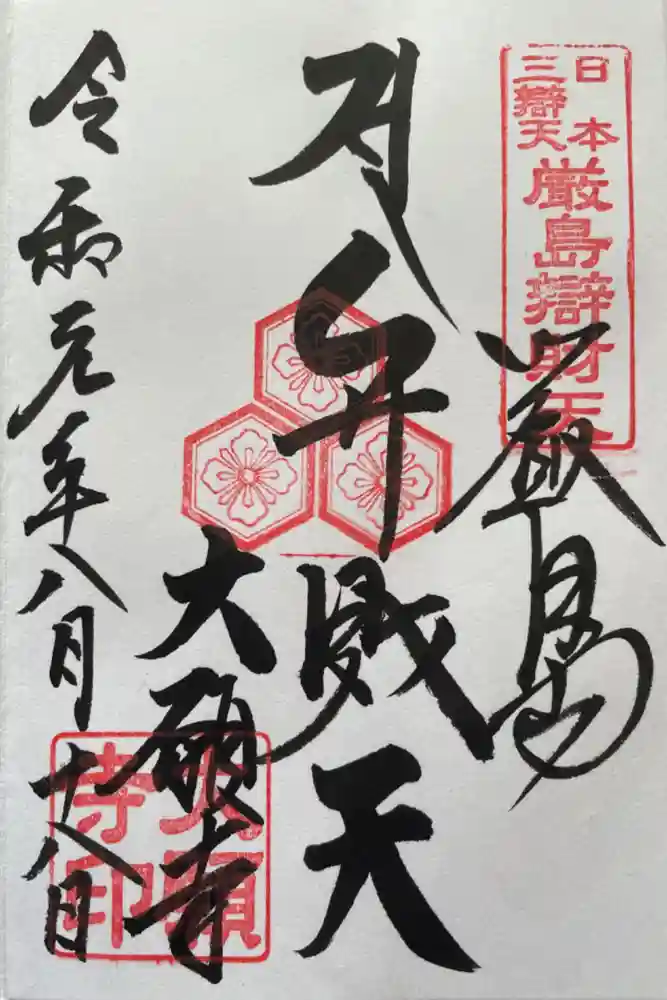 日本
三辯天
厳島辯財天
厳島
弁財天
大願寺
大願寺印
令和元年八月十八日